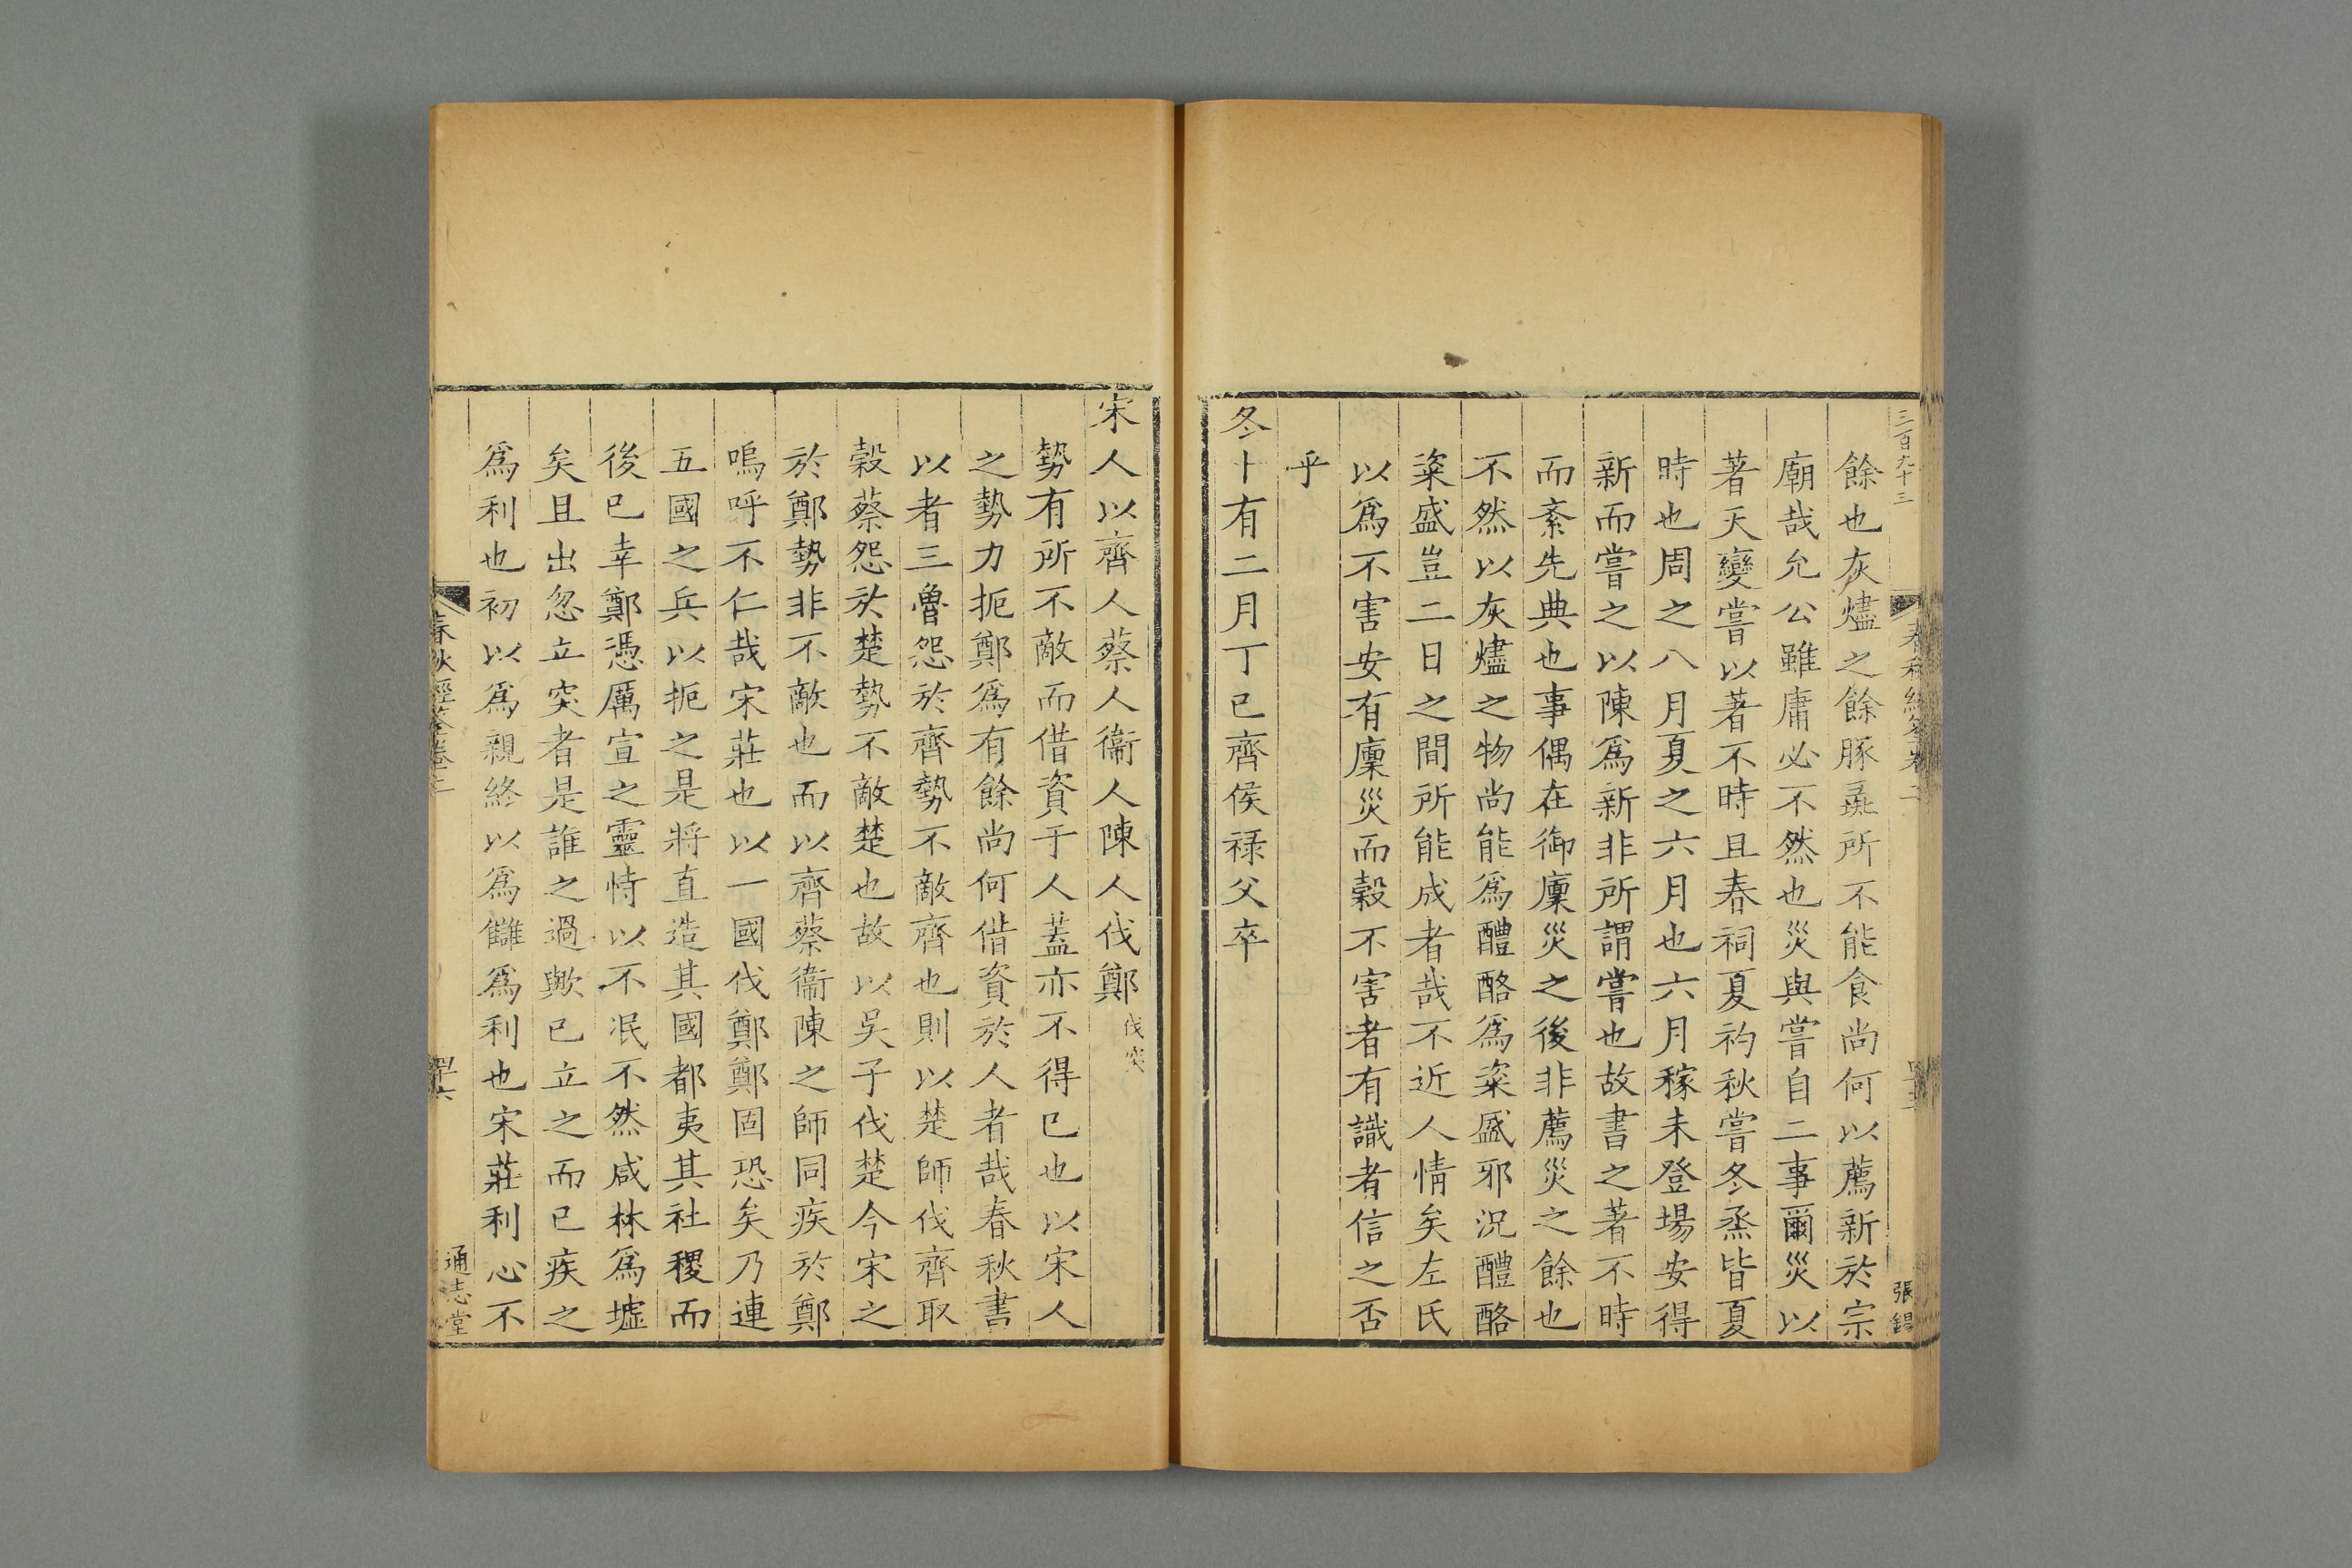 三百九十三
春秋經筌卷二
張錫
餘也灰燼之餘豚彘所不能食尚何以薦新於宗
廟哉允公雖庸必不然也災與嘗自二事爾災以
著天變嘗以著不時且春祠夏礿秋嘗冬烝皆夏
時也周之八月夏之六月也六月稼未登場安得
新而嘗之以陳爲新非所謂嘗也故書之著不時
而紊先典也事偶在御廩災之後非薦災之餘也
不然以灰燼之物尚能爲醴酪爲粢盛邪況醴酪
粢盛豈二日之間所能成者哉不近人情矣左氏
以爲不害安有廩災而穀不害者有識者信之否
乎
冬十有二月丁巳齊侯祿父卒
宋人以齊人蔡人衞人陳人伐鄭伐突
勢有所不敵而借資于人蓋亦不得已也以宋人
之勢力扼鄭爲有餘尚何借資於人者哉春秋書
以者三魯怨於齊勢不敵齊也則以楚師伐齊取
穀蔡怨於楚勢不敵楚也故以吳子伐楚今宋之
於鄭勢非不敵也而以齊蔡衞陳之師同疾於鄭
嗚呼不仁哉宋莊也以一國伐鄭鄭固恐矣乃連
五國之兵以扼之是將直造其國都夷其社稷而
後已幸鄭憑厲宣之靈恃以不泯不然咸林爲墟
矣且出忽立突者是誰之過歟已立之而已疾之
爲利也初以爲親終以爲讎爲利也宋莊利心不
春秋經筌卷二
四十六
通志堂